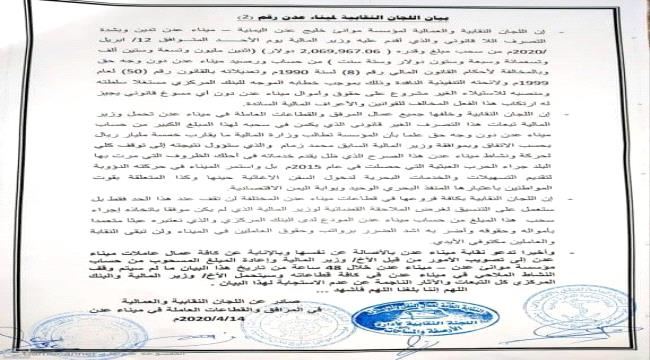 بيان اللجان النقابية لميناء عدن رقم (2)
إن اللجان النقابية والعمالية لمؤسسة موانئ خليج عدن اليمنية – ميناء عدن تدين وبشدة
التصرف اللا قانوني والذي أقدم عليه وزير المالية يوم الأحد الموافق 12/ ابريل
/2020م من سحب مبلغ وقدره ( 2,069,967.06 دولار ) (اثنين مليون وتسعة وستين ألف
وتسعمائة وسبعة وستون دولار وستة سنت ) من حساب ورصيد ميناء عدن دون وجه حق
وبالمخالفة لأحكام القانون المالي رقم (8) لسنة 1990م وتعديلاته بالقانون رقم (50) لعام
1999م ولائحته التنفيذية النافذة وذلك بموجب خطابه الموجه للبنك المركزي مستغلا سلطته
ومنصبه للاستيلاء الغير مشروع على حقوق وأموال ميناء عدن دون أي مسوغ قانوني يجيز
له ارتكاب هذا الفعل المخالف للقوانين والأعراف المالية السائدة.
إن اللجان النقابية وخلفها جميع عمال المرفق والقطاعات العاملة في ميناء عدن تحمل وزير
المالية تبعات هذا التصرف الغير قانوني الذي يكمن في سحبه لهذا المبلغ الكبير من حساب
ميناء عدن دون وجه حق علما بأن المؤسسة تطالب وزارة المالية ما يقارب خمسة مليار ريال
بحسب الاتفاق وبموافقة وزير المالية السابق محمد زمام والذي ستؤول نتيجته إلى توقف كلي
لحركة ونشاط ميناء عدن هذا الصرح الذي ظل يقدم خدماته في أحلك الظروف التي مرت بها
البلد جراء الحرب العبثية التي حصلت في عام 2015م بل واستمر الميناء في حركته الدؤوبة
لتقديم التسهيلات والخدمات البحرية لدخول السفن الاغاثية حينها وكذا المتعلقة بقوت
المواطنين باعتبارها المنفذ البحري الوحيد وبوابة اليمن الاقتصادية.
إن اللجان النقابية بكافة فروعها في قطاعات ميناء عدن المختلفة لن تقف عند هذا الحد فقط بل
ستعمل على التنسيق لغرض الملاحقة القضائية لوزير المالية الذي لم يكن موفقا باتخاذه إجراء
سحب هذا المبلغ من حساب ميناء عدن المودع لدى البنك المركزي والذي نعتبره عبثا متعمدا
بأمواله وحقوقه وأضر به اشد الضرر برواتب وحقوق العاملين في الميناء ولن تبقى النقابة
والعاملين مكتوفي الأيدي.
وأخيرا تدعو نقابة ميناء عدن بالأصالة عن نفسها وبالإنابة عن كافة عمال عاملات ميناء
عدن إلى تصويب الأمور من قبل الأخ/ وزير المالية وإعادة المبلغ المسحوب من حساب
مؤسسة موانئ عدن – ميناء عدن خلال 48 ساعة من تاريخ هذا البيان ما لم سيتم وقف
النشاط الملاحي في ميناء عدن في كافة قطاعاته وسيتحمل الأخ/ وزير المالية والبنك
المركزي كل التبعات والآثار الناجمة عن عدم الاستجابة لهذا البيان .
اللهم إننا بلغنا اللهم فاشهد...
صادر عن اللجان النقابية والعمالية
في المرافق والقطاعات العاملة في ميناء عدن
2020/4/14م
اللجنة النقابية لإدارة